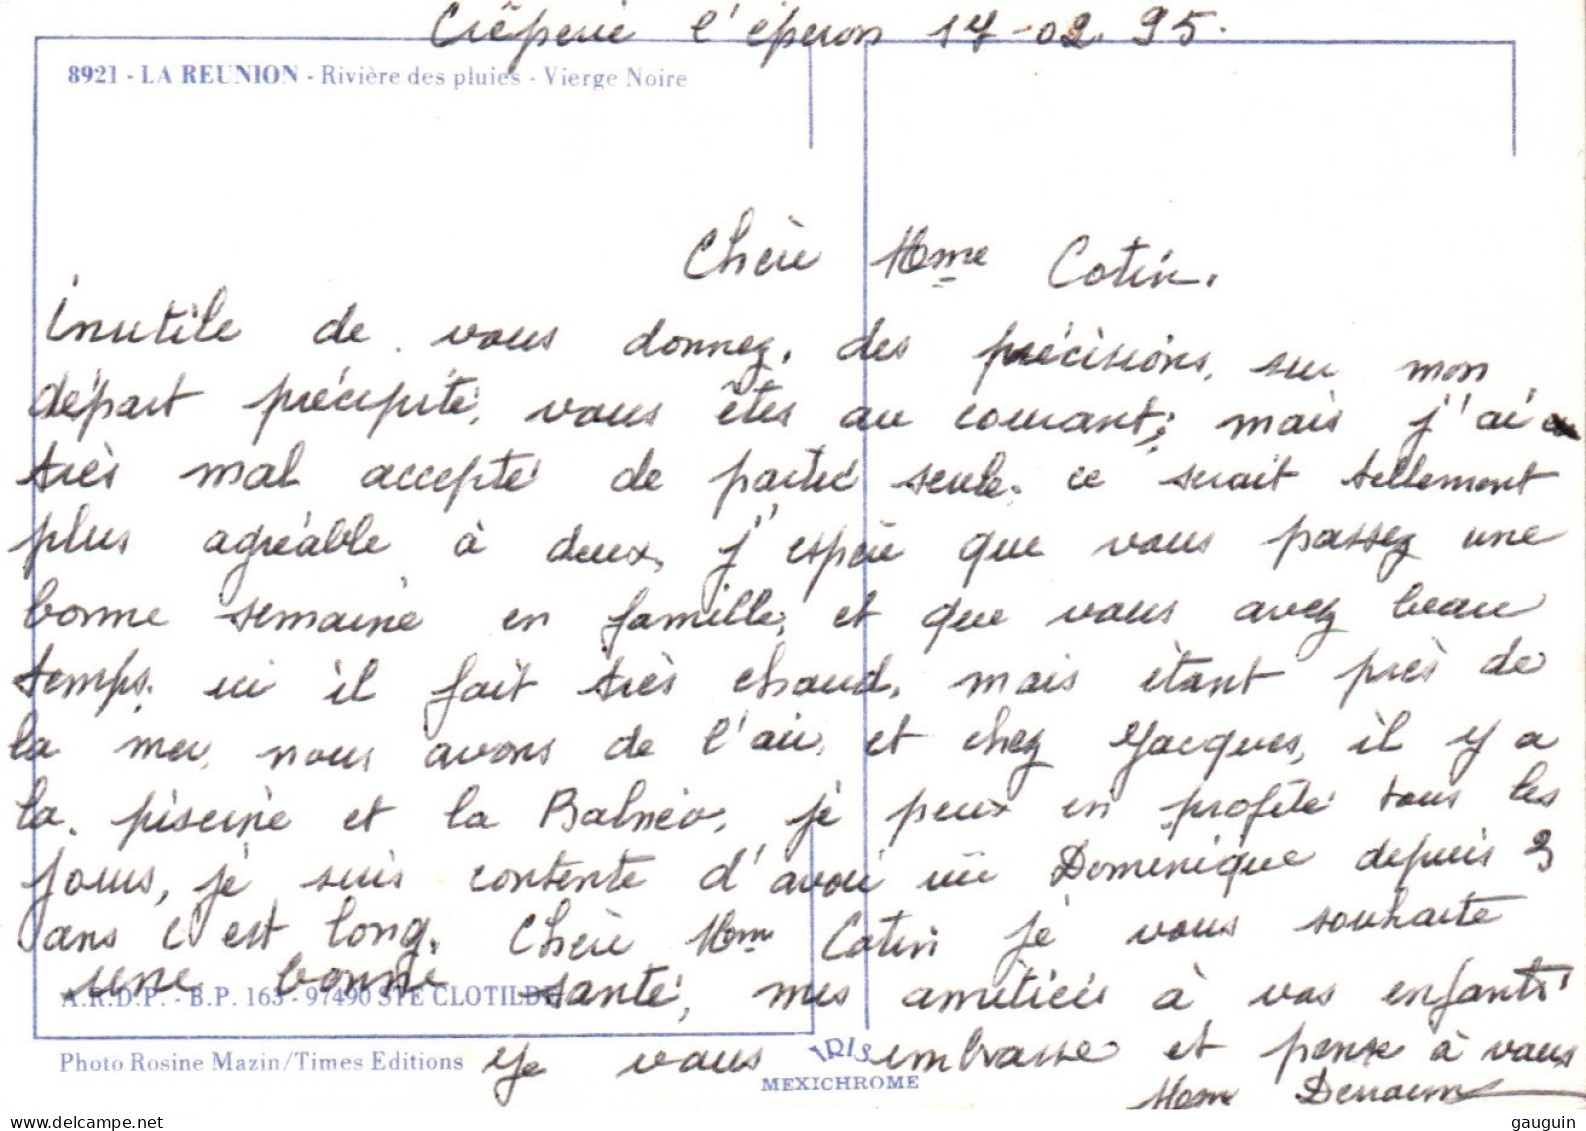 Crêperie l'éperon 17-02.95.
8921 - LA REUNION - Rivière des pluies - Vierge Noire
Chère Mme Cotin.
Inutile de vous donnez, des précisions, sur mon
départ précipité, vous êtes au courant; mais j'ai
très mal accepté de partir seule. ce serait tellement
plus agréable à deux, j'espère que vous passez une
bonne semaine en famille, et que vous avez beau
temps. ici il fait très chaud, mais étant près de
la mer, nous avons de l'air, et chez Jacques, il y a
la piscine et la Balnéo, je peux en profité tous les
jours, je suis contente d'avoir vu Dominique depuis 3
ans c'est long. Chère Mme Cotin je vous souhaite
une bonne santé, mes amitiées à vos enfants
A.R.D.P. - B.P. 163 - 97490 STE CLOTILDE
Photo Rosine Mazin/Times Editions
Je vous embrasse et pense à vous
IRIS
MEXICHROME
Mme
gauguin